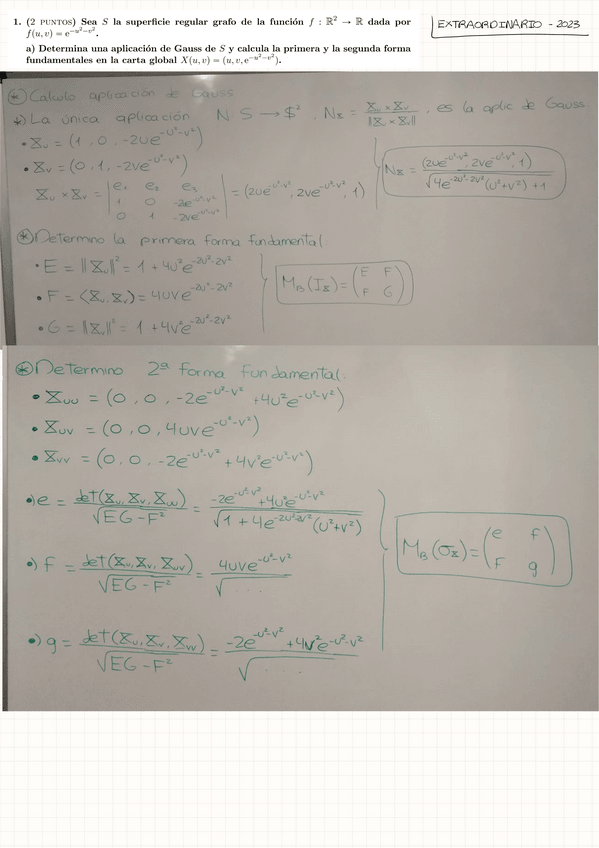 1. (2 PUNTOS) Sea S la superficie regular grafo de la función f : ℝ² → ℝ dada por
f(u, v) = e^{-u²-v²}.
EXTRAORDINARIO - 2023
a) Determina una aplicación de Gauss de S y calcula la primera y la segunda forma
fundamentales en la carta global X(u, v) = (u, v, e^{-u²-v²}).
⊛ Calculo aplicación de Gauss
*) La única aplicación N: S → $², N_X = X_u × X_v / ||X_u × X_v||, es la aplic de Gauss.
• X_u = (1, 0, -2ue^{-u²-v²})
• X_v = (0, 1, -2ve^{-u²-v²})
X_u × X_v = | e₁ e₂ e₃ |
| 1 0 -2ue^{-u²-v²} |
| 0 1 -2ve^{-u²-v²} | = (2ue^{-u²-v²}, 2ve^{-u²-v²}, 1)
N_X = (2ue^{-u²-v²}, 2ve^{-u²-v²}, 1) / √(4e^{-2u²-2v²}(u²+v²)+1)
⊛ Determino la primera forma fundamental
• E = ||X_u||² = 1 + 4u²e^{-2u²-2v²}
• F = ⟨X_u, X_v⟩ = 4uve^{-2u²-2v²}
• G = ||X_v||² = 1 + 4v²e^{-2u²-2v²}
M_B(I_X) = (E F
F G)
⊛ Determino 2ª forma fundamental.
• X_uu = (0, 0, -2e^{-u²-v²} + 4u²e^{-u²-v²})
• X_uv = (0, 0, 4uve^{-u²-v²})
• X_vv = (0, 0, -2e^{-u²-v²} + 4v²e^{-u²-v²})
•) e = det(X_u, X_v, X_uu) / √(EG-F²) = -2e^{-u²-v²} + 4u²e^{-u²-v²} / √(1 + 4e^{-2u²-2v²}(u²+v²))
•) f = det(X_u, X_v, X_uv) / √(EG-F²) = 4uve^{-u²-v²} / √....
•) g = det(X_u, X_v, X_vv) / √(EG-F²) = -2e^{-u²-v²} + 4v²e^{-u²-v²} / √....
M_B(σ_X) = (e f
f g)